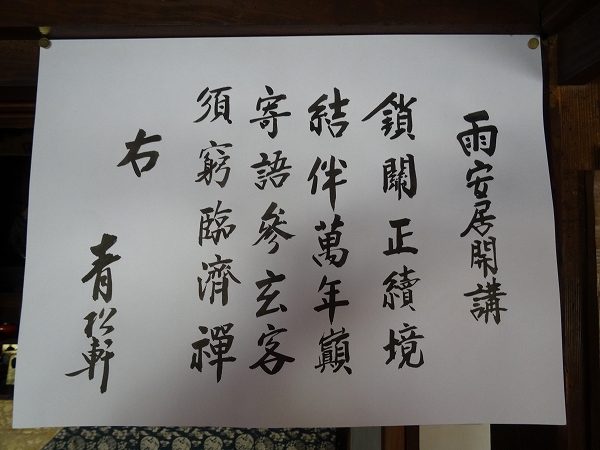 雨安居開講
鎖關正續境
結伴萬年巓
寄語參玄客
須窮臨濟禪
右
青松軒